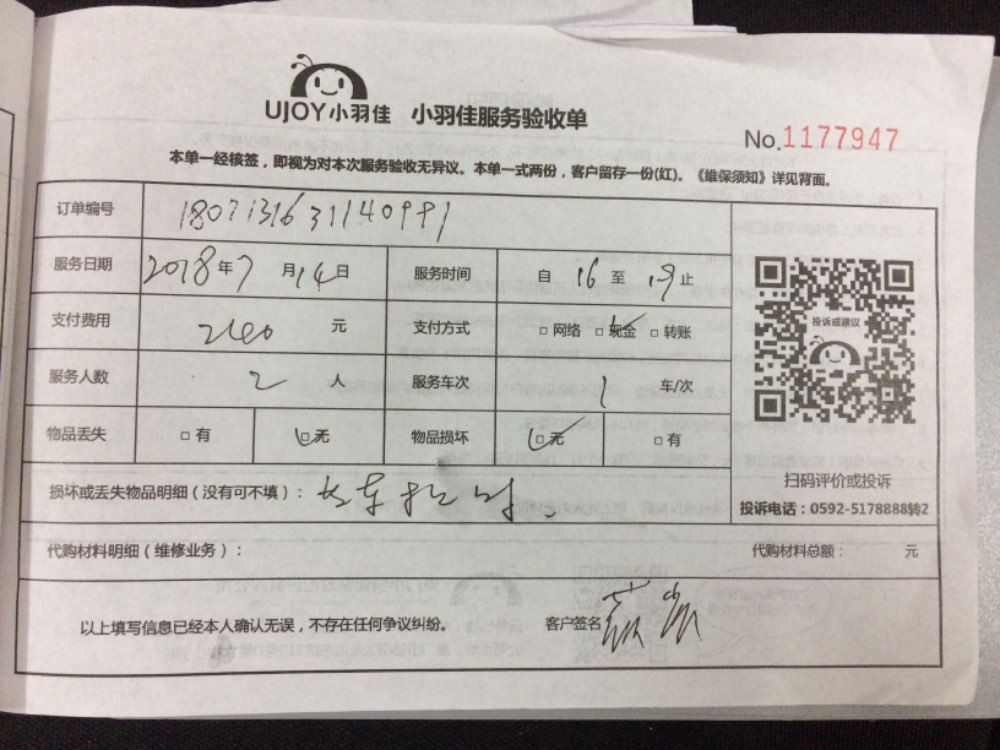 UJOY小羽佳 小羽佳服务验收单
No.1177947
本单一经核签，即视为对本次服务验收无异议。本单一式两份，客户留存一份(红)。《维保须知》详见背面。
订单编号
服务日期 2018年7月14日 服务时间 自16至19止
支付费用 元 支付方式 □网络 □现金 □转账
服务人数 2人 服务车次 1 车/次
物品丢失 □有 □无 物品损坏 □无 □有
投诉或建议
扫码评价或投诉
投诉电话：0592-5178888转2
损坏或丢失物品明细（没有可不填）：
代购材料明细（维修业务）： 代购材料总额： 元
以上填写信息已经本人确认无误，不存在任何争议纠纷。 客户签名